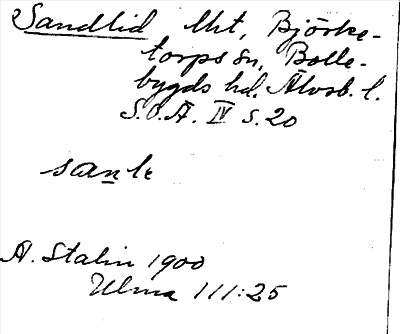 Sandlid lht, Björke-
torps sn, Bolle-
bygds hd. Älvsb. l.
S.O.Ä. IV s. 20
A. Stalin 1900
Ulma 111:25